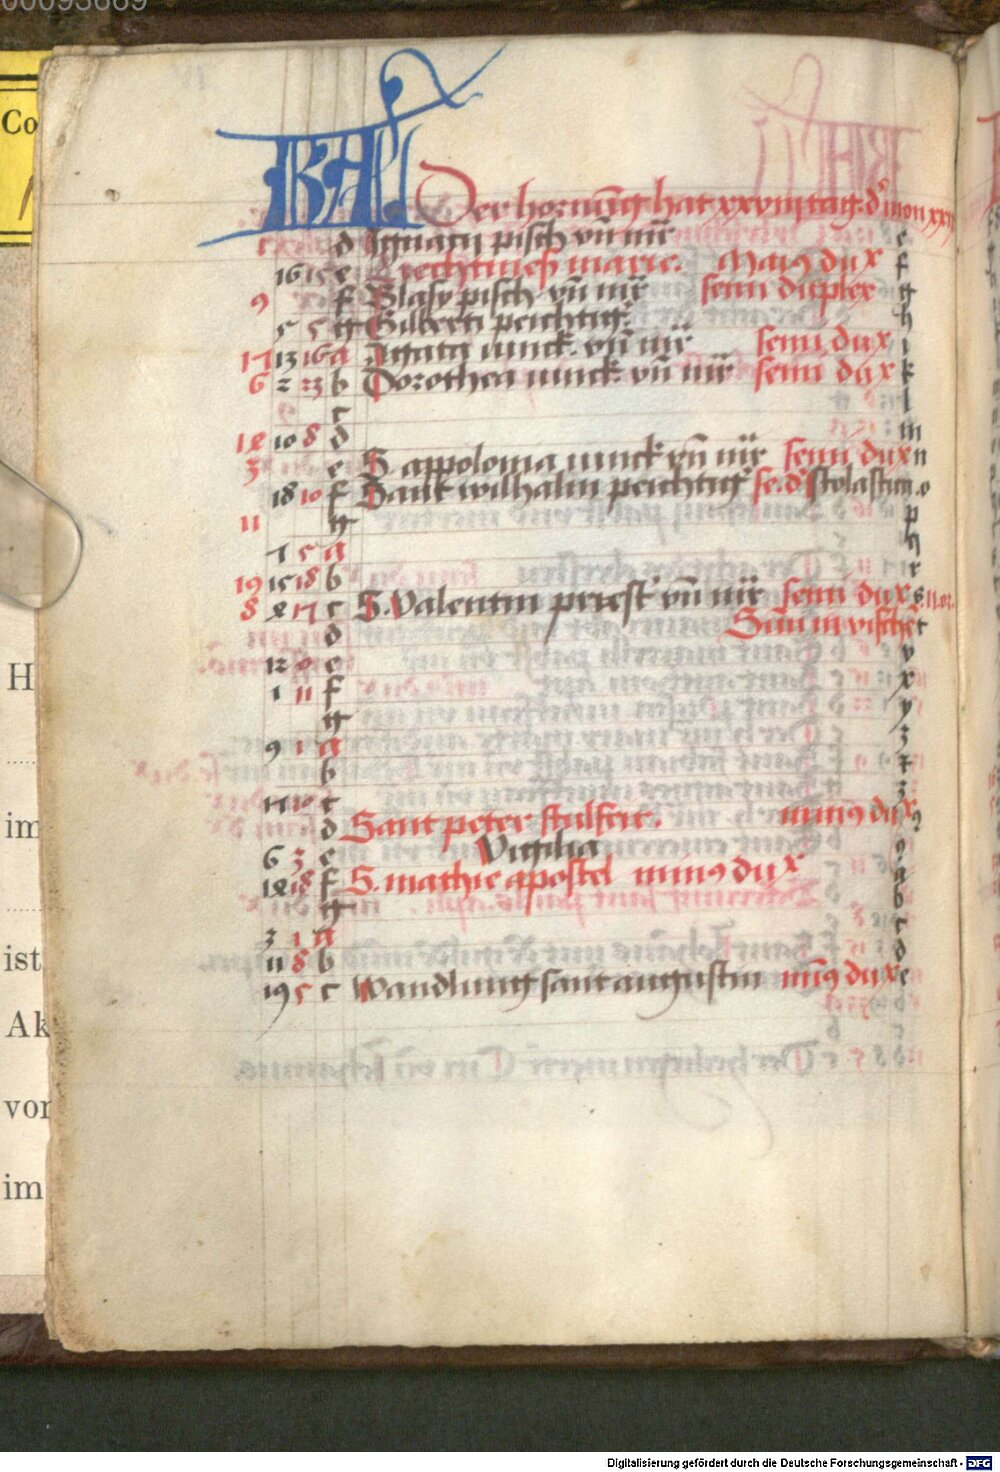 KAL Der hornūg hat xxviij tag d' mon xxx
d Ignacij pisch vn̄ mr̄ e
16 15 e Liechtmeß marie. Maiꝰ dux f
9 f Blasy pisch vn̄ mr̄ semi duplex g
5 5 g Gilberti peichtig h
17 13 16 a Agata iunck. vn̄ mr̄ semi dux i
6 2 23 b Dorothea iunck. vn̄ mr̄ semi dux k
c l
18 10 8 d m
3 e S. appolonia iunck vn̄ mr̄ semi dux n
18 10 f Sant wilhalm peichtig se. d' scolastica. o
11 g p
7 5 a q
19 15 18 b r
8 4 17 c S. Valentin priest vn̄ mr̄ semi dux s
d Sun in vische t
12 e v
1 11 f x
g y
9 1 a z
b
17 10 c
d Sant peter stulfeir. minꝰ dux
Vigilia
6 3 e
14 18 f S. mathie apostel minꝰ dux a
g b
3 1 a c
11 8 b d
19 5 c Wandlung sant augustin minꝰ dux e
Co
H
im
ist
Ak
vor
im
00093689
Digitalisierung gefördert durch die Deutsche Forschungsgemeinschaft - DFG